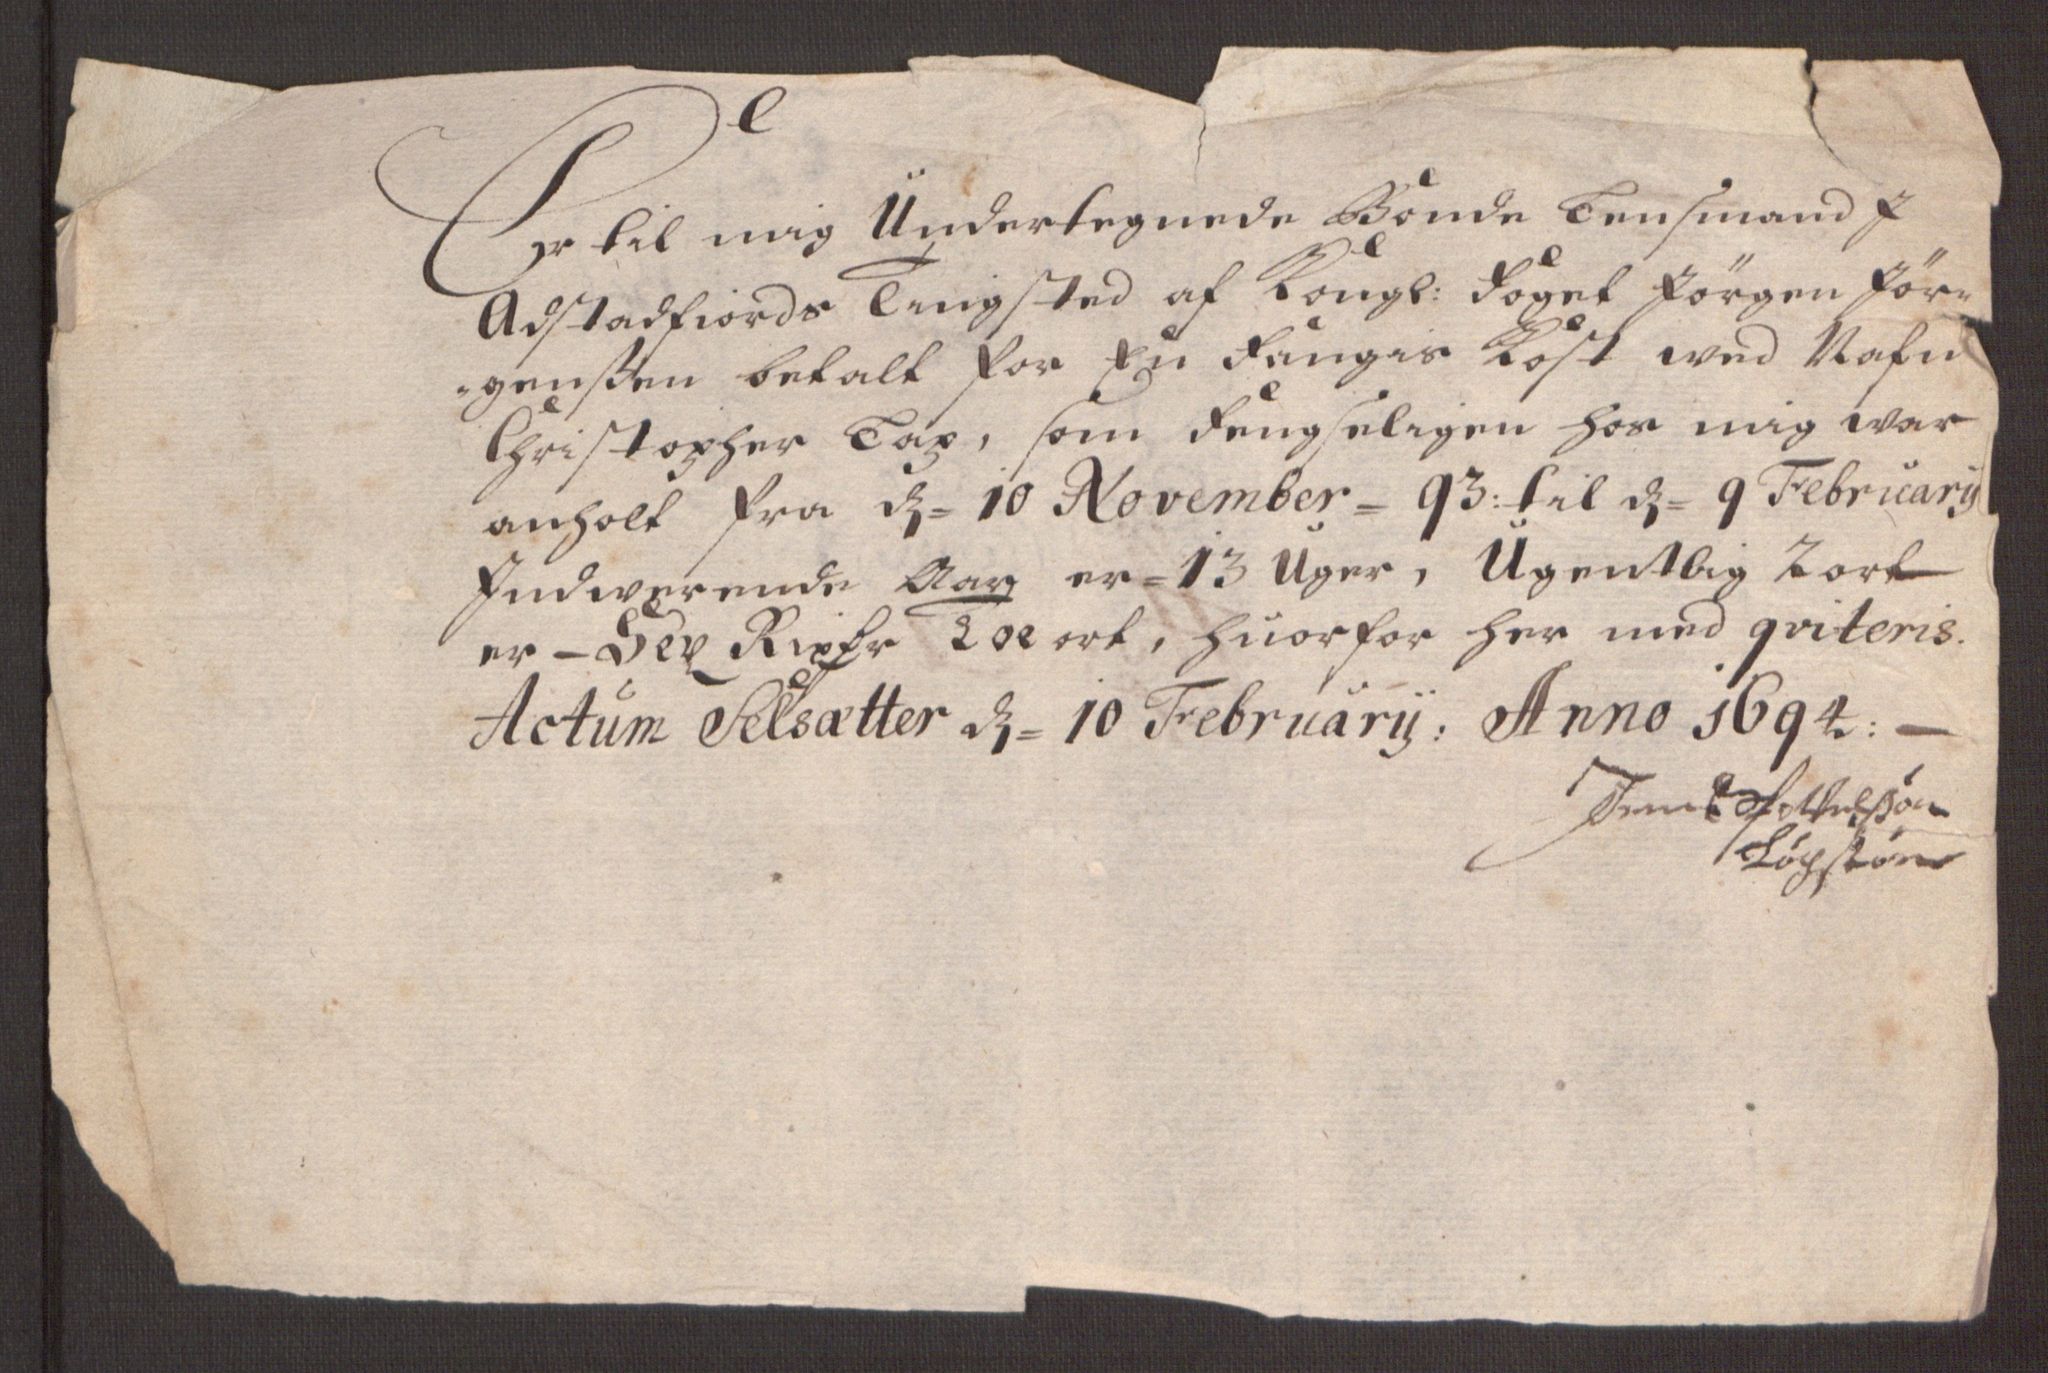 Er til mig Undertegnede Bonde Lensmand J
Adstadfiords Tingsted af Kongl: foget Jörgen Jör=
=genssen betalt for En fangis Kost wed Nafn
Christopher Tax, som fengseligen hos mig war
anholt fra d= 10 November= 93: til d= 9 Februarij
Indwerende Aar er=13 Uger, Ugentlig 2 ort
er - Sex Rixdr Toe ort, huorfor her med qviteris.
Actum Selsætter d= 10 Februarij: Anno 1694: —
Jens